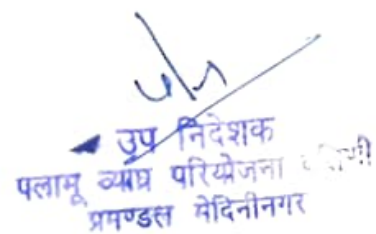 उप निदेशक
पलामू व्याघ्र परियोजना
प्रमण्डल मेदिनीनगर